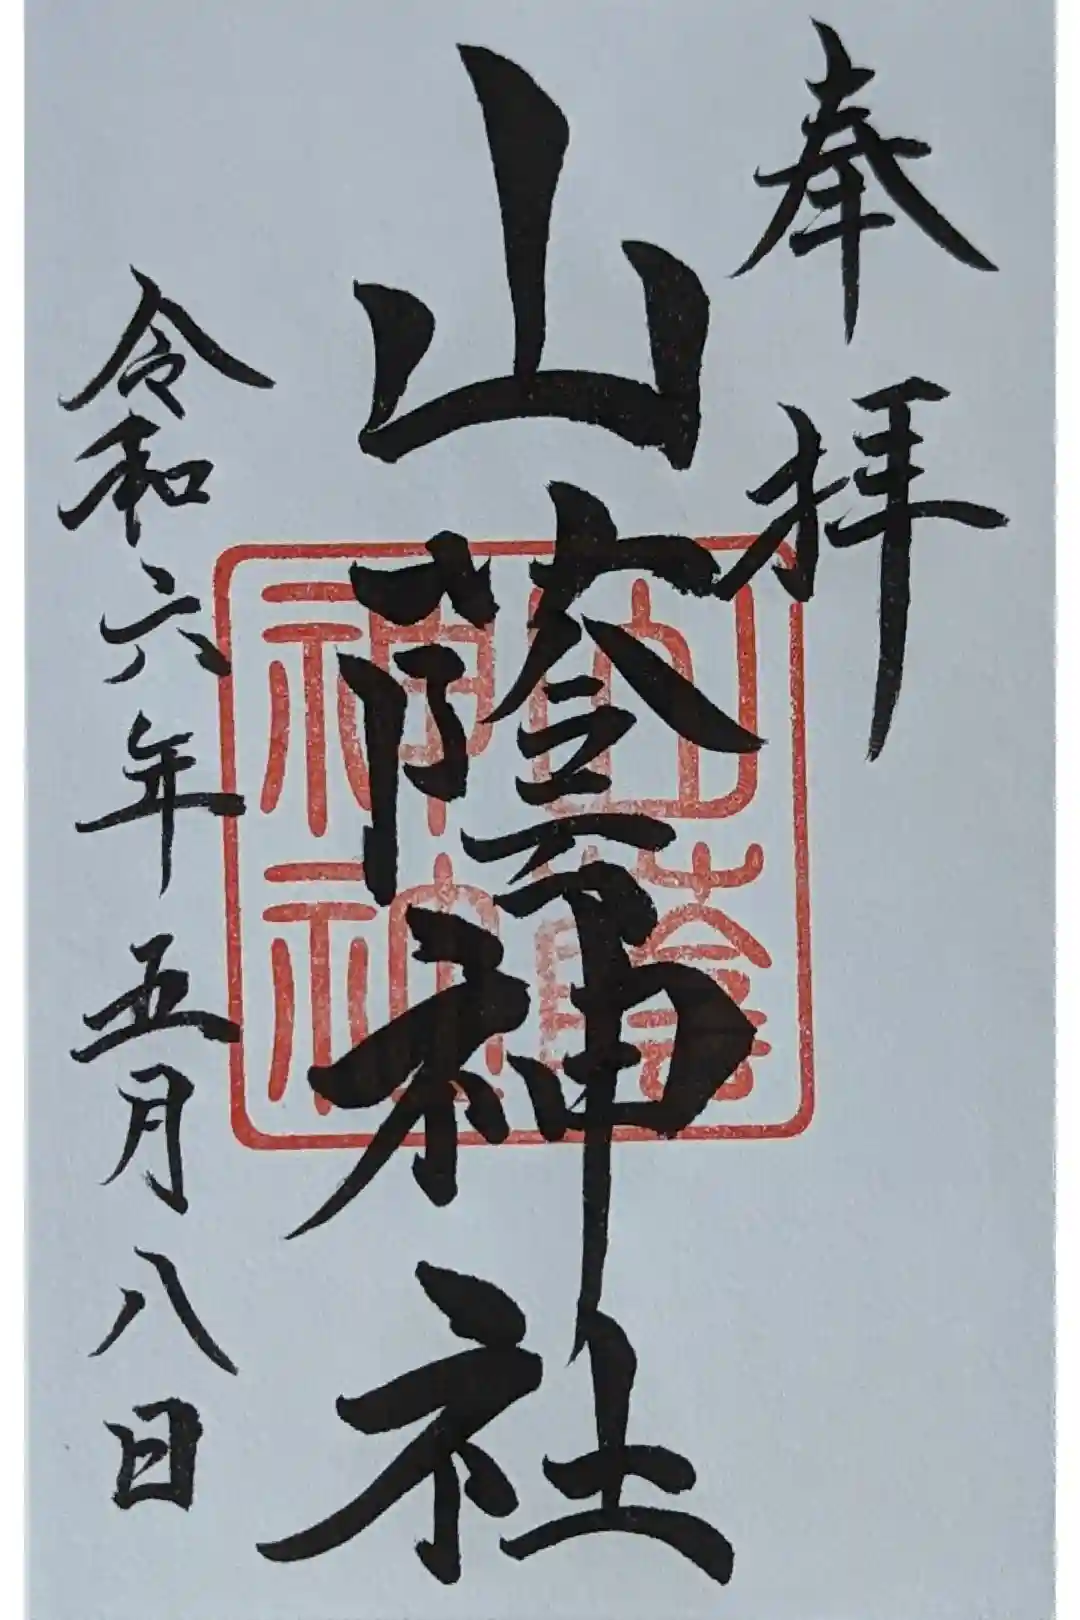 奉拝
山蔭神社
山蔭
神社
令和六年五月八日